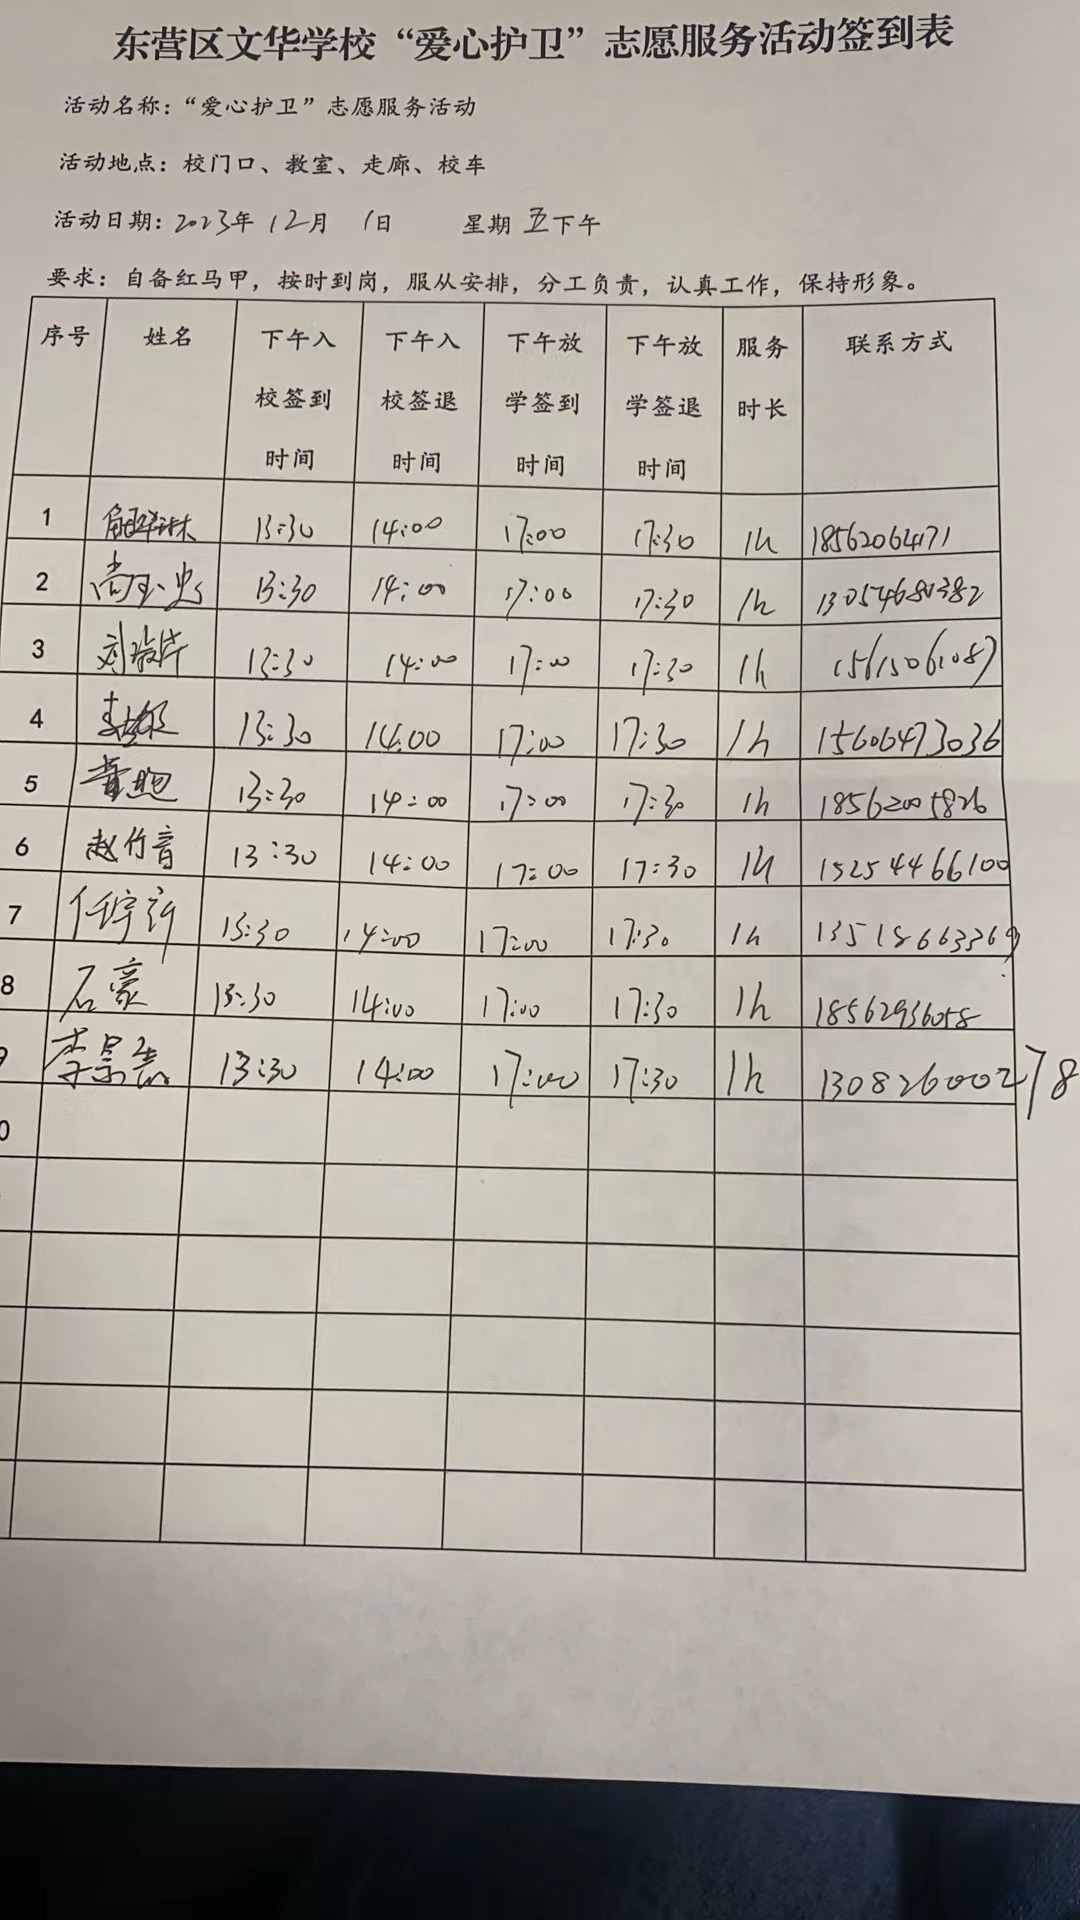 东营区文华学校“爱心护卫”志愿服务活动签到表
活动名称：“爱心护卫”志愿服务活动
活动地点：校门口、教室、走廊、校车
活动日期：2023年 12月 1日 星期五下午
要求：自备红马甲，按时到岗，服从安排，分工负责，认真工作，保持形象。
序号 姓名 下午入校签到时间 下午入校签退时间 下午放学签到时间 下午放学签退时间 服务时长 联系方式
1 13:30 14:00 17:00 17:30 1h 18562064171
2 13:30 14:00 17:00 17:30 1h 13054680382
3 13:30 14:00 17:00 17:30 1h 15615061087
4 13:30 14:00 17:00 17:30 1h 15606473036
5 13:30 14:00 17:00 17:30 1h 18562005826
6 赵竹音 13:30 14:00 17:00 17:30 1h 15254466100
7 13:30 14:00 17:00 17:30 1h 13518663369
8 石豪 13:30 14:00 17:00 17:30 1h 18562936058
9 13:30 14:00 17:00 17:30 1h 13082600278
0